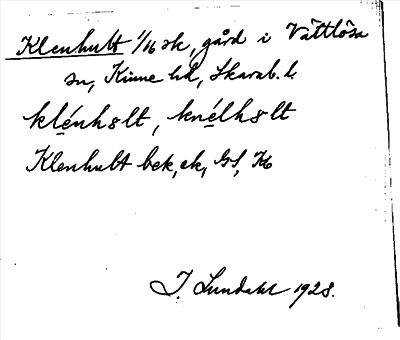 Klenhult 1/16 sk, gård i Vättlösa
sn, Kinne hd, Skarab. l.
klénhult, knélhult
Klenhult bek, ek, GS, Kb
I. Lundahl 1928.